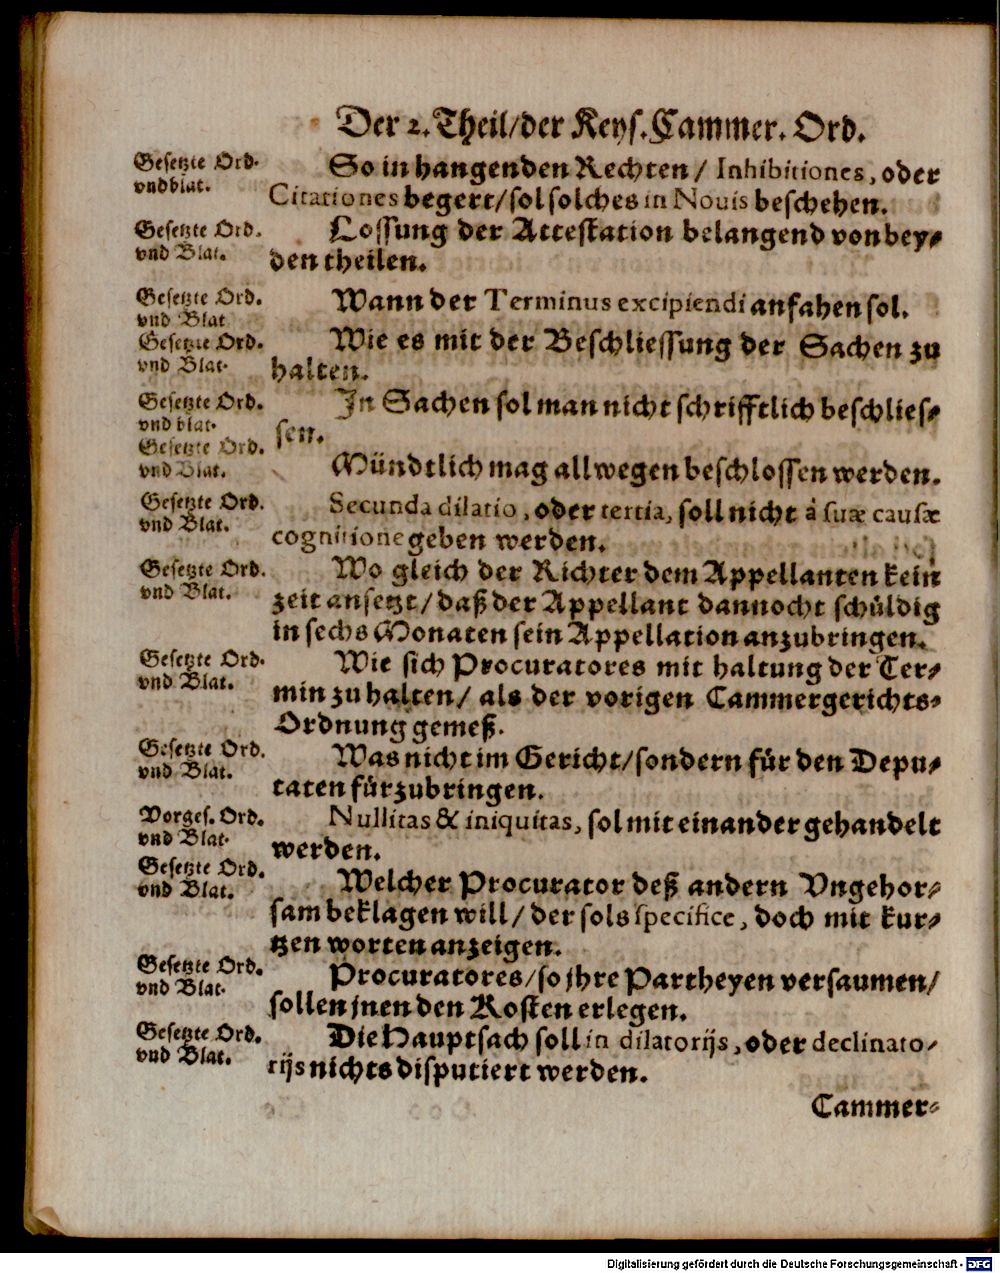 Der 2. Theil/der Keys. Cammer. Ord.
Gesetzte Ord.
vnd blat.
So in hangenden Rechten/ Inhibitiones, oder
Citationes begert/ sol solches in Nouis beschehen.
Gesetzte Ord.
vnd Blat.
Lossung der Attestation belangend von bey-
den theilen.
Gesetzte Ord.
vnd Blat
Wann der Terminus excipiendi anfahen sol.
Gesetzte Ord.
vnd Blat.
Wie es mit der Beschliessung der Sachen zu
halten.
Gesetzte Ord.
vnd blat.
In Sachen sol man nicht schrifftlich beschlies-
sen.
Gesetzte Ord.
vnd Blat.
Mündtlich mag allwegen beschlossen werden.
Gesetzte Ord.
vnd Blat.
Secunda dilatio, oder tertia, soll nicht à suæ causæ
cognitione geben werden.
Gesetzte Ord.
vnd Blat.
Wo gleich der Richter dem Appellanten kein
zeit ansetzt/ daß der Appellant dannocht schüldig
in sechs Monaten sein Appellation anzubringen.
Gesetzte Ord.
vnd Blat.
Wie sich Procuratores mit haltung der Ter-
min zu halten/ als der vorigen Cammergerichts-
Ordnung gemeß.
Gesetzte Ord.
vnd Blat.
Was nicht im Gericht/ sondern für den Depu-
taten fürzubringen.
Vorges. Ord.
vnd Blat.
Nullitas & iniquitas, sol mit einander gehandelt
werden.
Gesetzte Ord.
vnd Blat.
Welcher Procurator deß andern Vngehor-
sam beklagen will/ der sols specifice, doch mit kur-
tzen worten anzeigen.
Gesetzte Ord.
vnd Blat.
Procuratores/ so jhre Partheyen versaumen/
sollen jnen den Kosten erlegen.
Gesetzte Ord.
vnd Blat.
Die Hauptsach soll in dilatorijs, oder declinato-
rijs nichts disputiert werden.
Cammer-
Digitalisierung gefördert durch die Deutsche Forschungsgemeinschaft - DFG